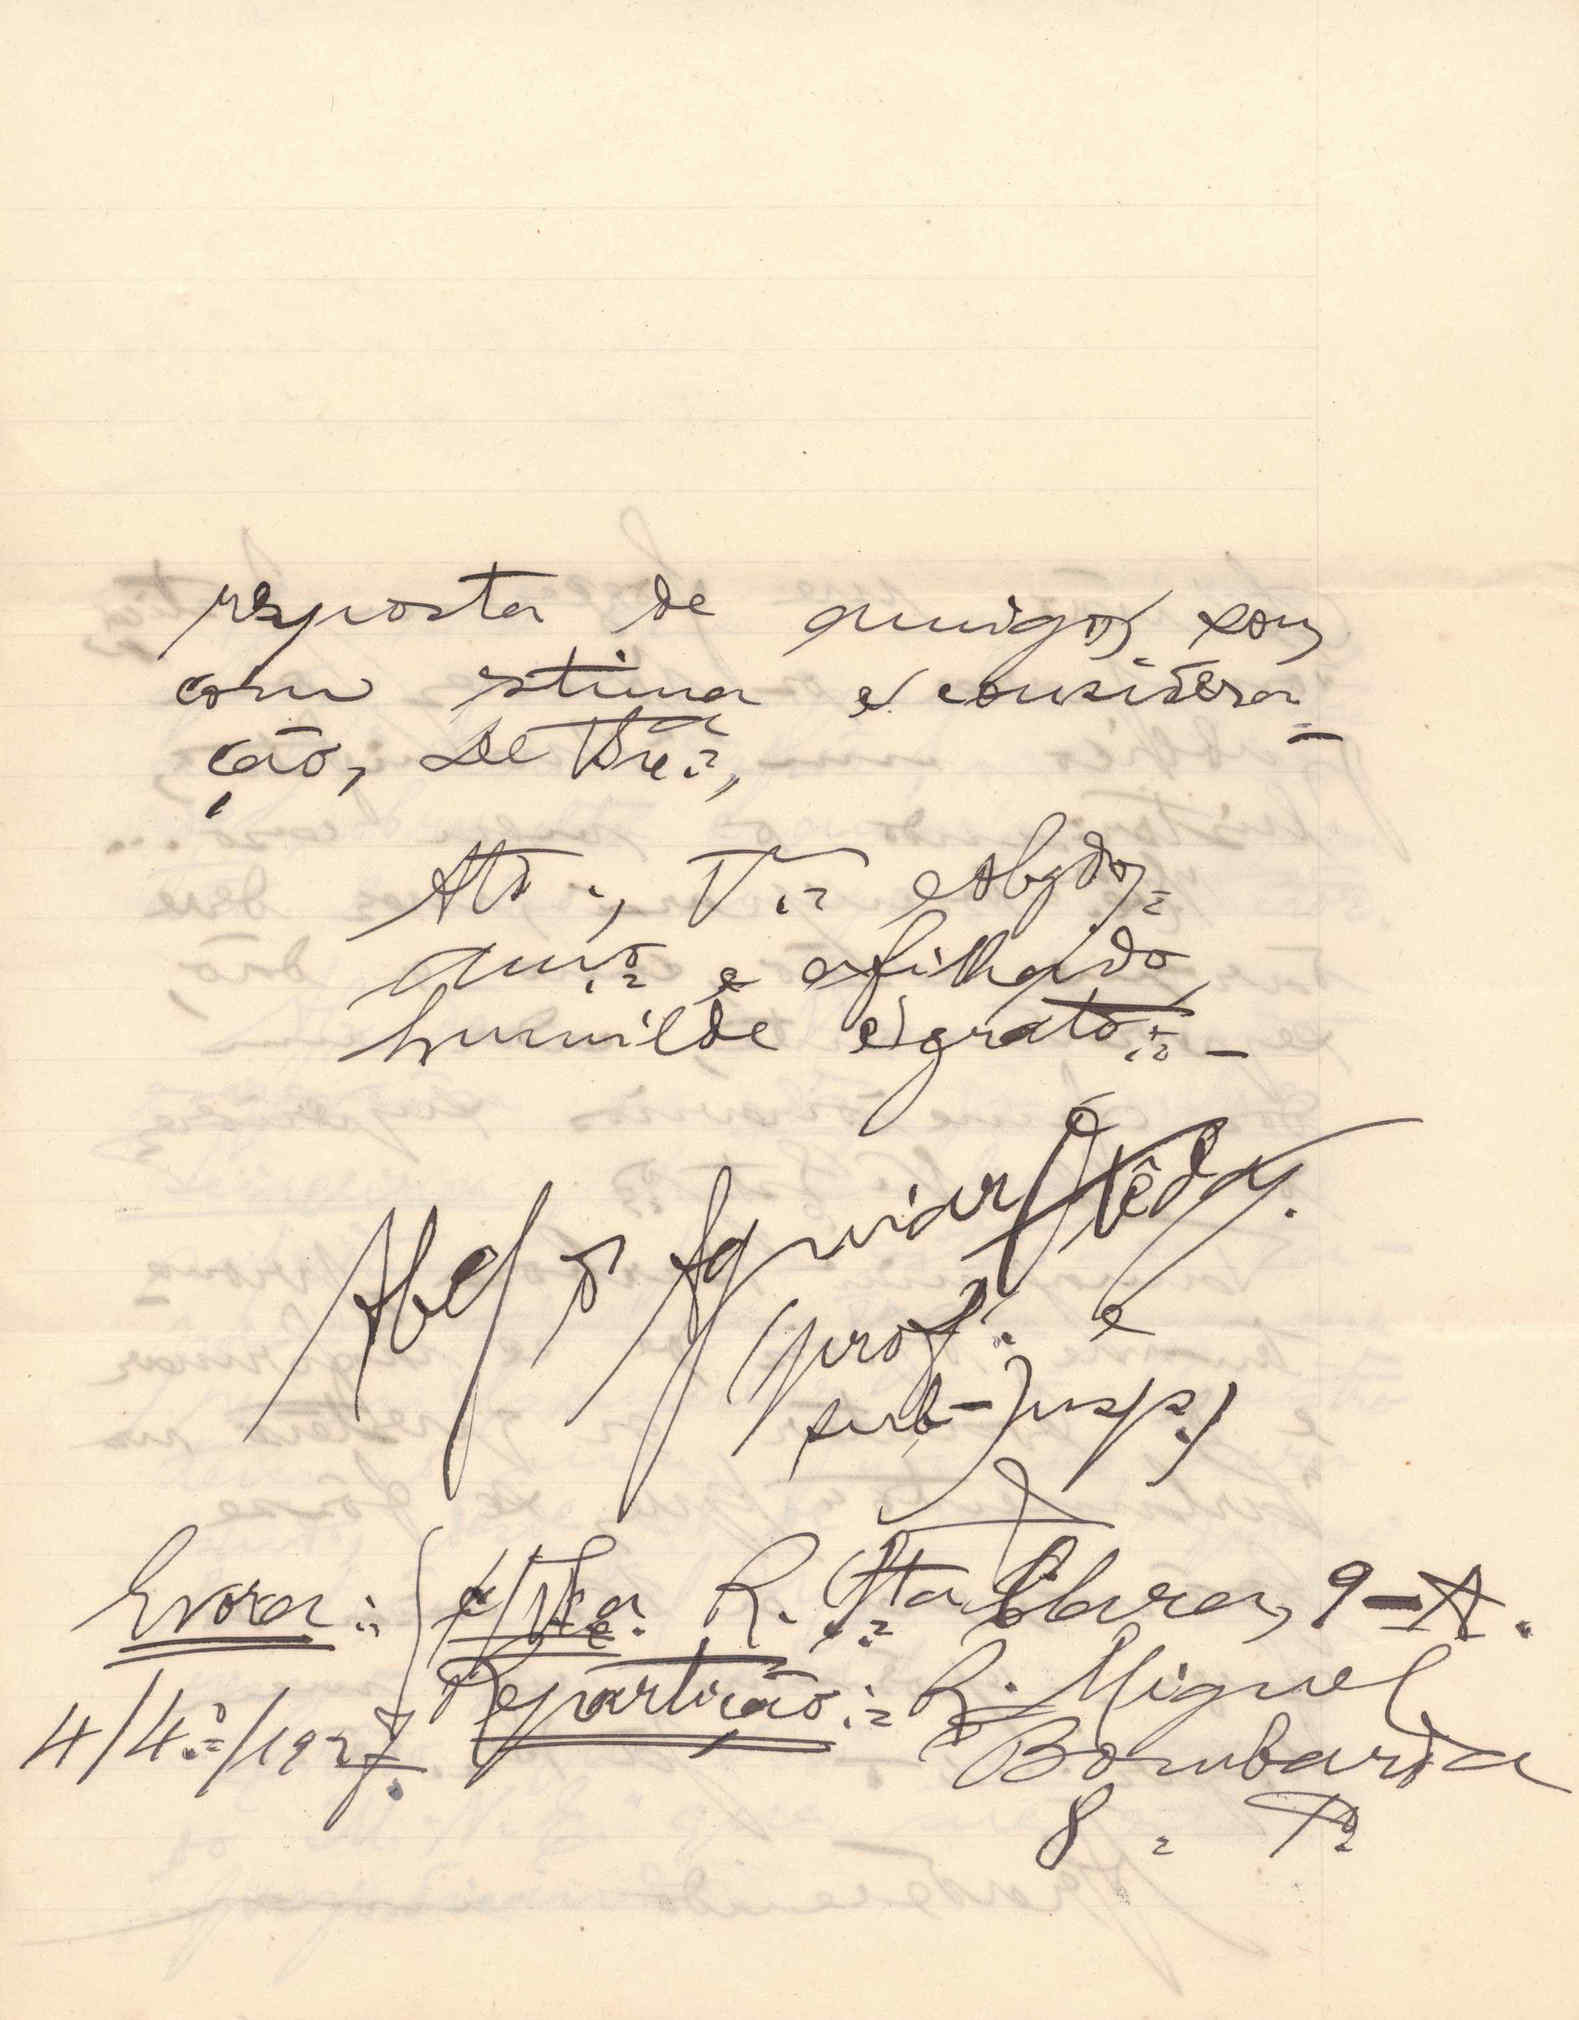 resposta de amigo, sou,
com estima e considera-
ção, de V. Ex.ª,
Att.º, V.ºr e obgdo,
am.º e afilhado
humilde e grato: -
Abel d' Aguiar
(prof. e
sub-Insp.)
Evora: R. Sta. Clara, 9-A.
4/4.º/1927. Repartição: R. Miguel
Bombarda
8.